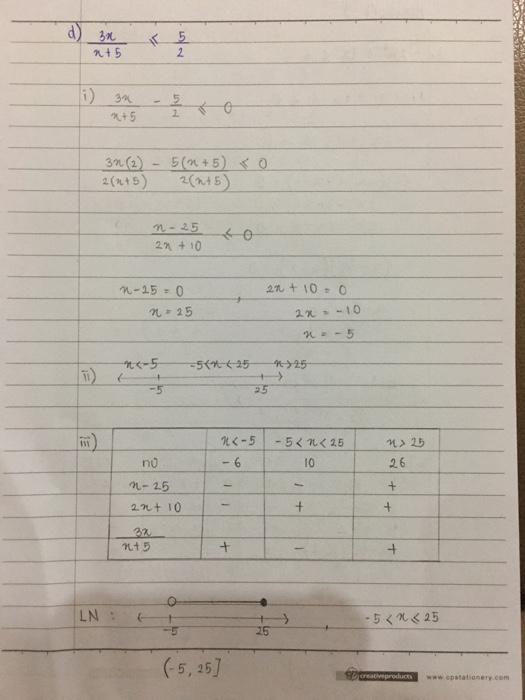 d) 3x/(x+5) ≤ 5/2
i) 3x/(x+5) - 5/2 ≤ 0
3x(2)/2(x+5) - 5(x+5)/2(x+5) ≤ 0
x-25/2x+10 ≤ 0
x-25 = 0 , 2x + 10 = 0
x = 25 2x = -10
x = -5
ii) x<-5 -5<x<25 x>25
-5 25
iii) x<-5 -5<x<25 x>25
no -6 10 26
x-25 - - +
2x+10 - + +
3x/x+5 + - +
LN : -5 25 , -5<x≤25
(-5, 25]
cp creativeproducts www.cpstationery.com